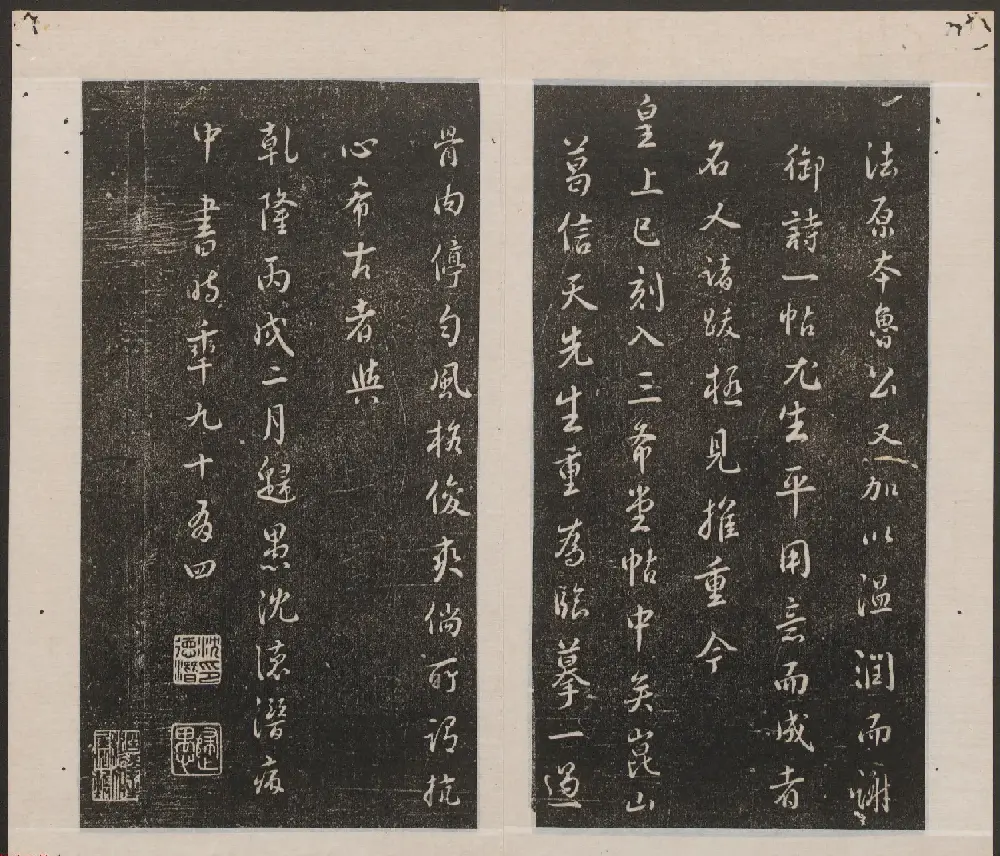 法原本魯公又加以溫潤而謝
御詩一帖尤生平用意而成者
名人諸跋極見推重今
皇上已刻入三希堂帖中矣崑山
葛信天先生重為臨摹一過
骨肉停勻風格俊爽倘所謂抗
心希古者與
乾隆丙戌二月歸愚沈德潛病
中書時年九十有四
沈印德潛
歸愚